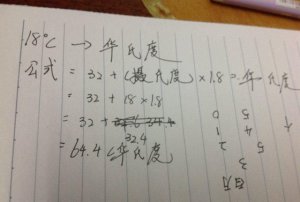 18°C → 华氏度
公式 = 32 + (摄氏度) × 1.8 = 华氏度
= 32 + 18 × 1.8
= 32 + 32.4
= 64.4 (华氏度)